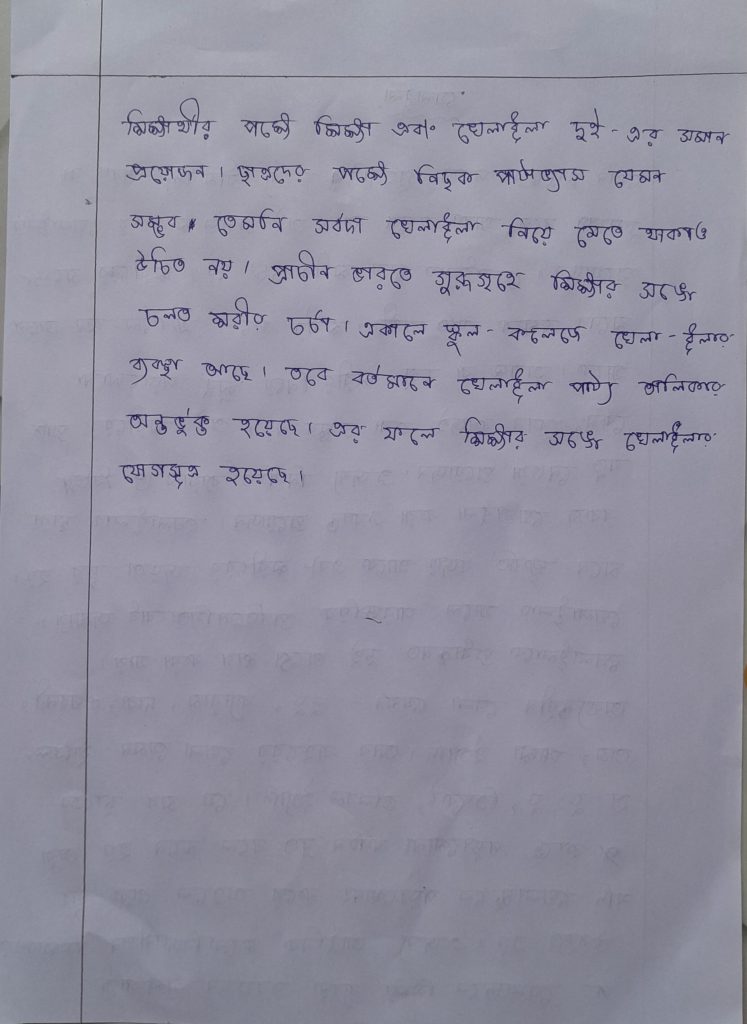 শিক্ষার্থীর পক্ষে শিক্ষা এবং খেলাধুলা দুই-এর সমান
প্রয়োজন। ছাত্রদের পক্ষে নিছক পাঠাভ্যাস যেমন
সম্ভব, তেমনি সর্বদা খেলাধুলা নিয়ে মেতে থাকাও
উচিত নয়। প্রাচীন ভারতে গুরুগৃহে শিক্ষার সঙ্গে
চলত শরীর চর্চা। একালে স্কুল-কলেজে খেলা-ধুলার
ব্যবস্থা আছে। তবে বর্তমানে খেলাধুলা পাঠ্য তালিকার
অন্তর্ভুক্ত হয়েছে। এর ফলে শিক্ষার সঙ্গে খেলাধুলার
যোগসূত্র হয়েছে।